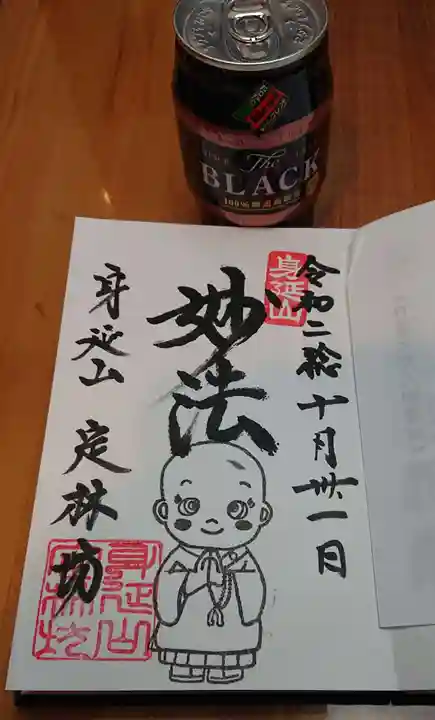 The
BLACK
身延山
令和二稔十月卅一日
妙法
身延山 定林坊
身延山
定林坊